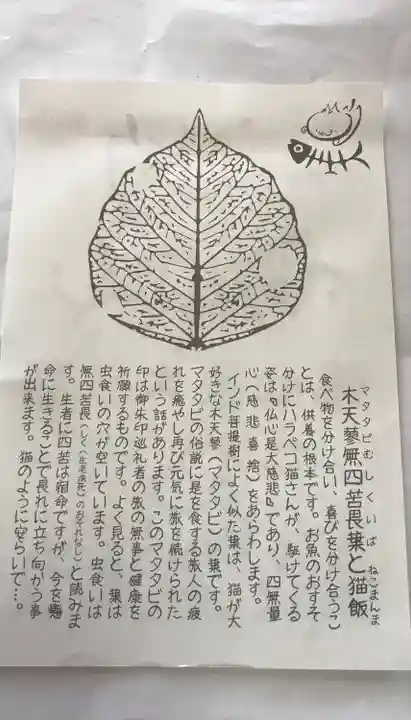 木天蓼無四苦畏葉と猫飯
マタタビむしくいば ねこまんま
食べ物を分け合い、喜びを分け合うこ
とは、供養の根本です。お魚のおすそ
分けにハラペコ猫さんが、駆けてくる
姿は『仏心是大慈悲』であり、四無量
心(慈悲喜捨)をあらわします。
インド菩提樹によく似た葉は、猫が大
好きな木天蓼(マタタビ)の葉です。
マタタビの俗説に是を食する旅人の疲
れを癒やし再び元気に旅を続けられた
という話があります。このマタタビの
印は御朱印巡礼者の旅の無事と健康を
祈願するものです。よく見ると、葉は
虫食いの穴が空いています。虫食いは
無四苦畏(しく(生老病死)のおそれなし)と読みま
す。生者に四苦は宿命ですが、今を懸
命に生きることで畏れに立ち向かう事
が出来ます。猫のように安らいで…。